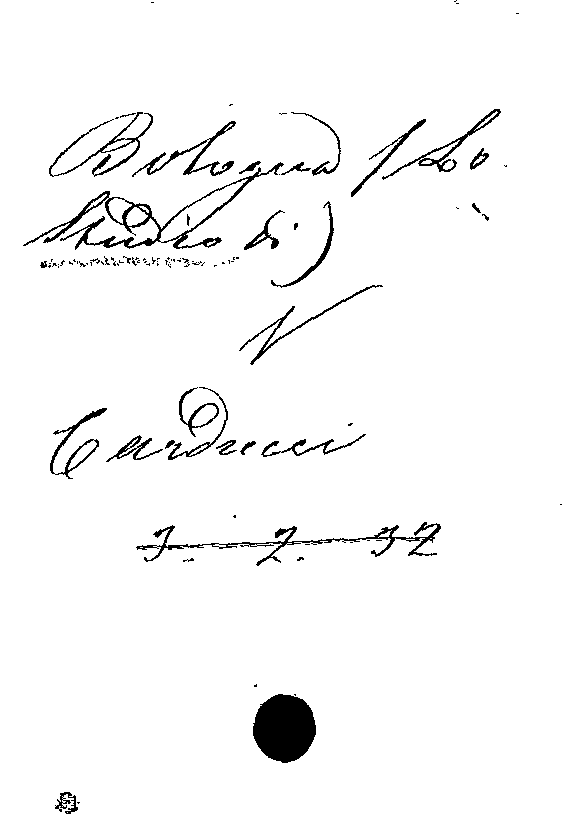 Bologna (Lo
Studio di)
V
Carducci
3. 2. 32